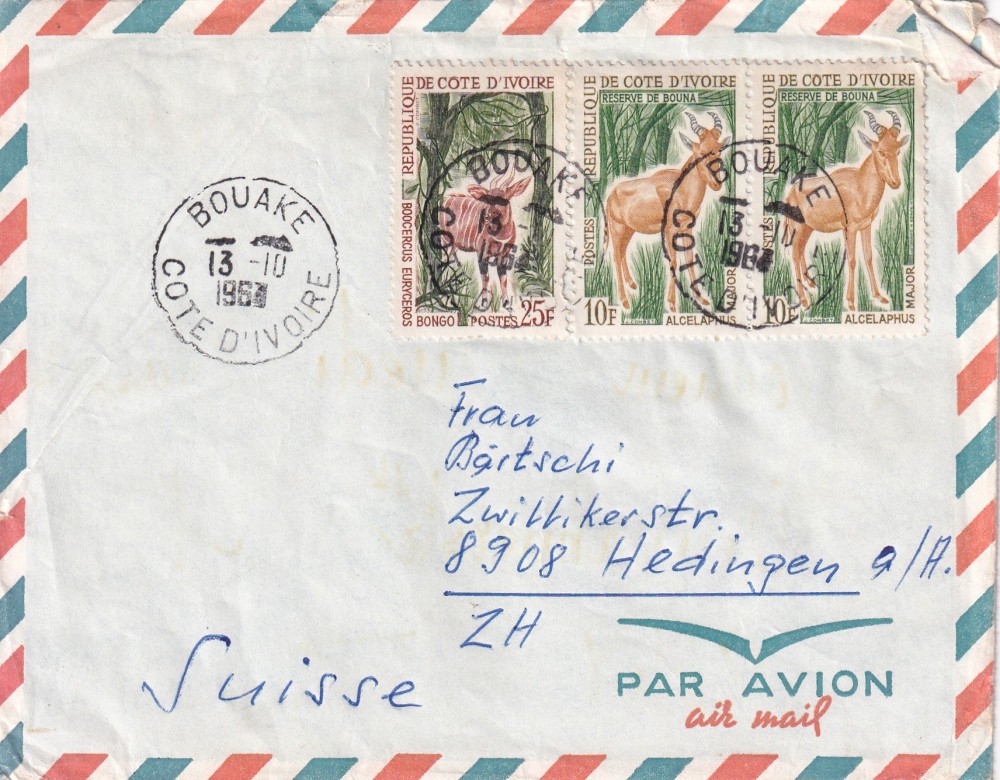 REPUBLIQUE DE COTE D'IVOIRE
BOOCERCUS EURYCEROS
BONGO POSTES 25F
REPUBLIQUE DE COTE D'IVOIRE
RESERVE DE BOUNA
POSTES
10F ALCELAPHUS MAJOR
REPUBLIQUE DE COTE D'IVOIRE
RESERVE DE BOUNA
POSTES
10F ALCELAPHUS MAJOR
BOUAKE
13 -10
COTE D'IVOIRE
BOUAKE
13
COTE D'IVOIRE
BOUAKE
13 10
COTE D'IVOIRE
Frau
Bärtschi
Zwillikerstr.
8908 Hedingen a/A.
ZH
Suisse
PAR AVION
air mail